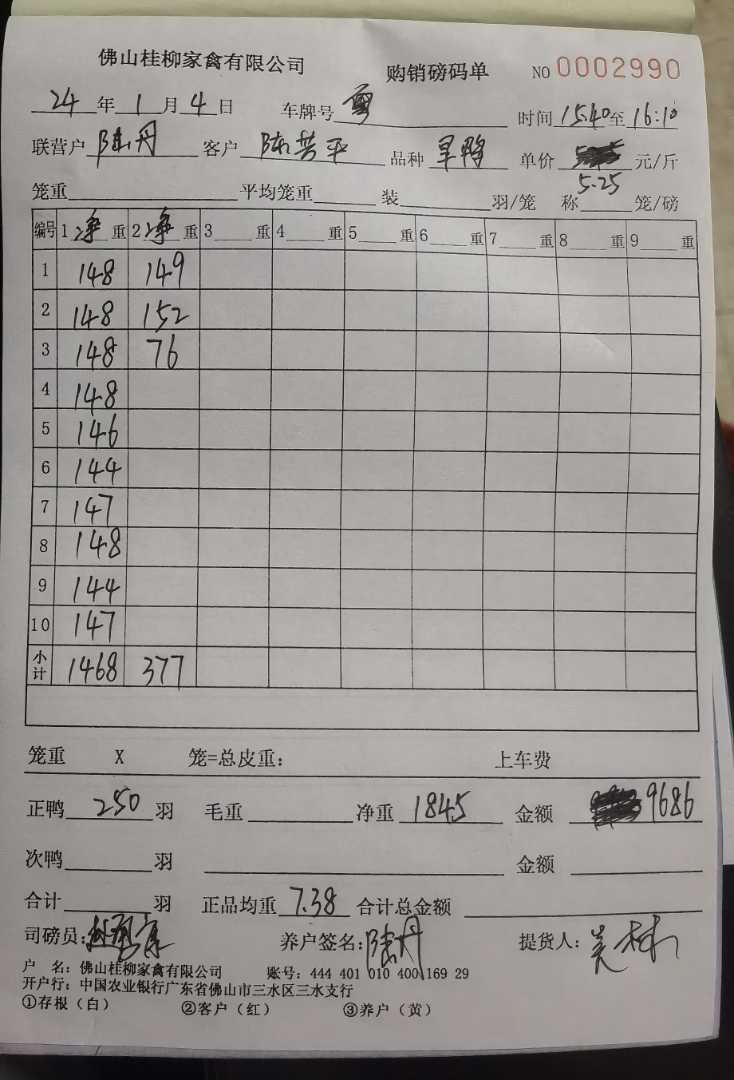 佛山桂柳家禽有限公司 购销磅码单 NO 0002990
24年1月4日 车牌号 时间15:40至16:10
联营户陆丹 客户陈芸平 品种旱鸭 单价 元/斤
5.25
笼重 平均笼重 装 羽/笼 称 笼/磅
编号 1净重 2净重 3 重 4 重 5 重 6 重 7 重 8 重 9 重
1 148 149
2 148 152
3 148 76
4 148
5 146
6 144
7 147
8 148
9 144
10 147
小计 1468 377
笼重 X 笼=总皮重: 上车费
正鸭250羽 毛重 净重1845 金额9686
次鸭 羽 金额
合计 羽 正品均重7.38 合计总金额
司磅员: 养户签名:陆丹 提货人:
户 名: 佛山桂柳家禽有限公司 账号: 444 401 010 400 169 29
开户行: 中国农业银行广东省佛山市三水区三水支行
①存根(白) ②客户(红) ③养户(黄)